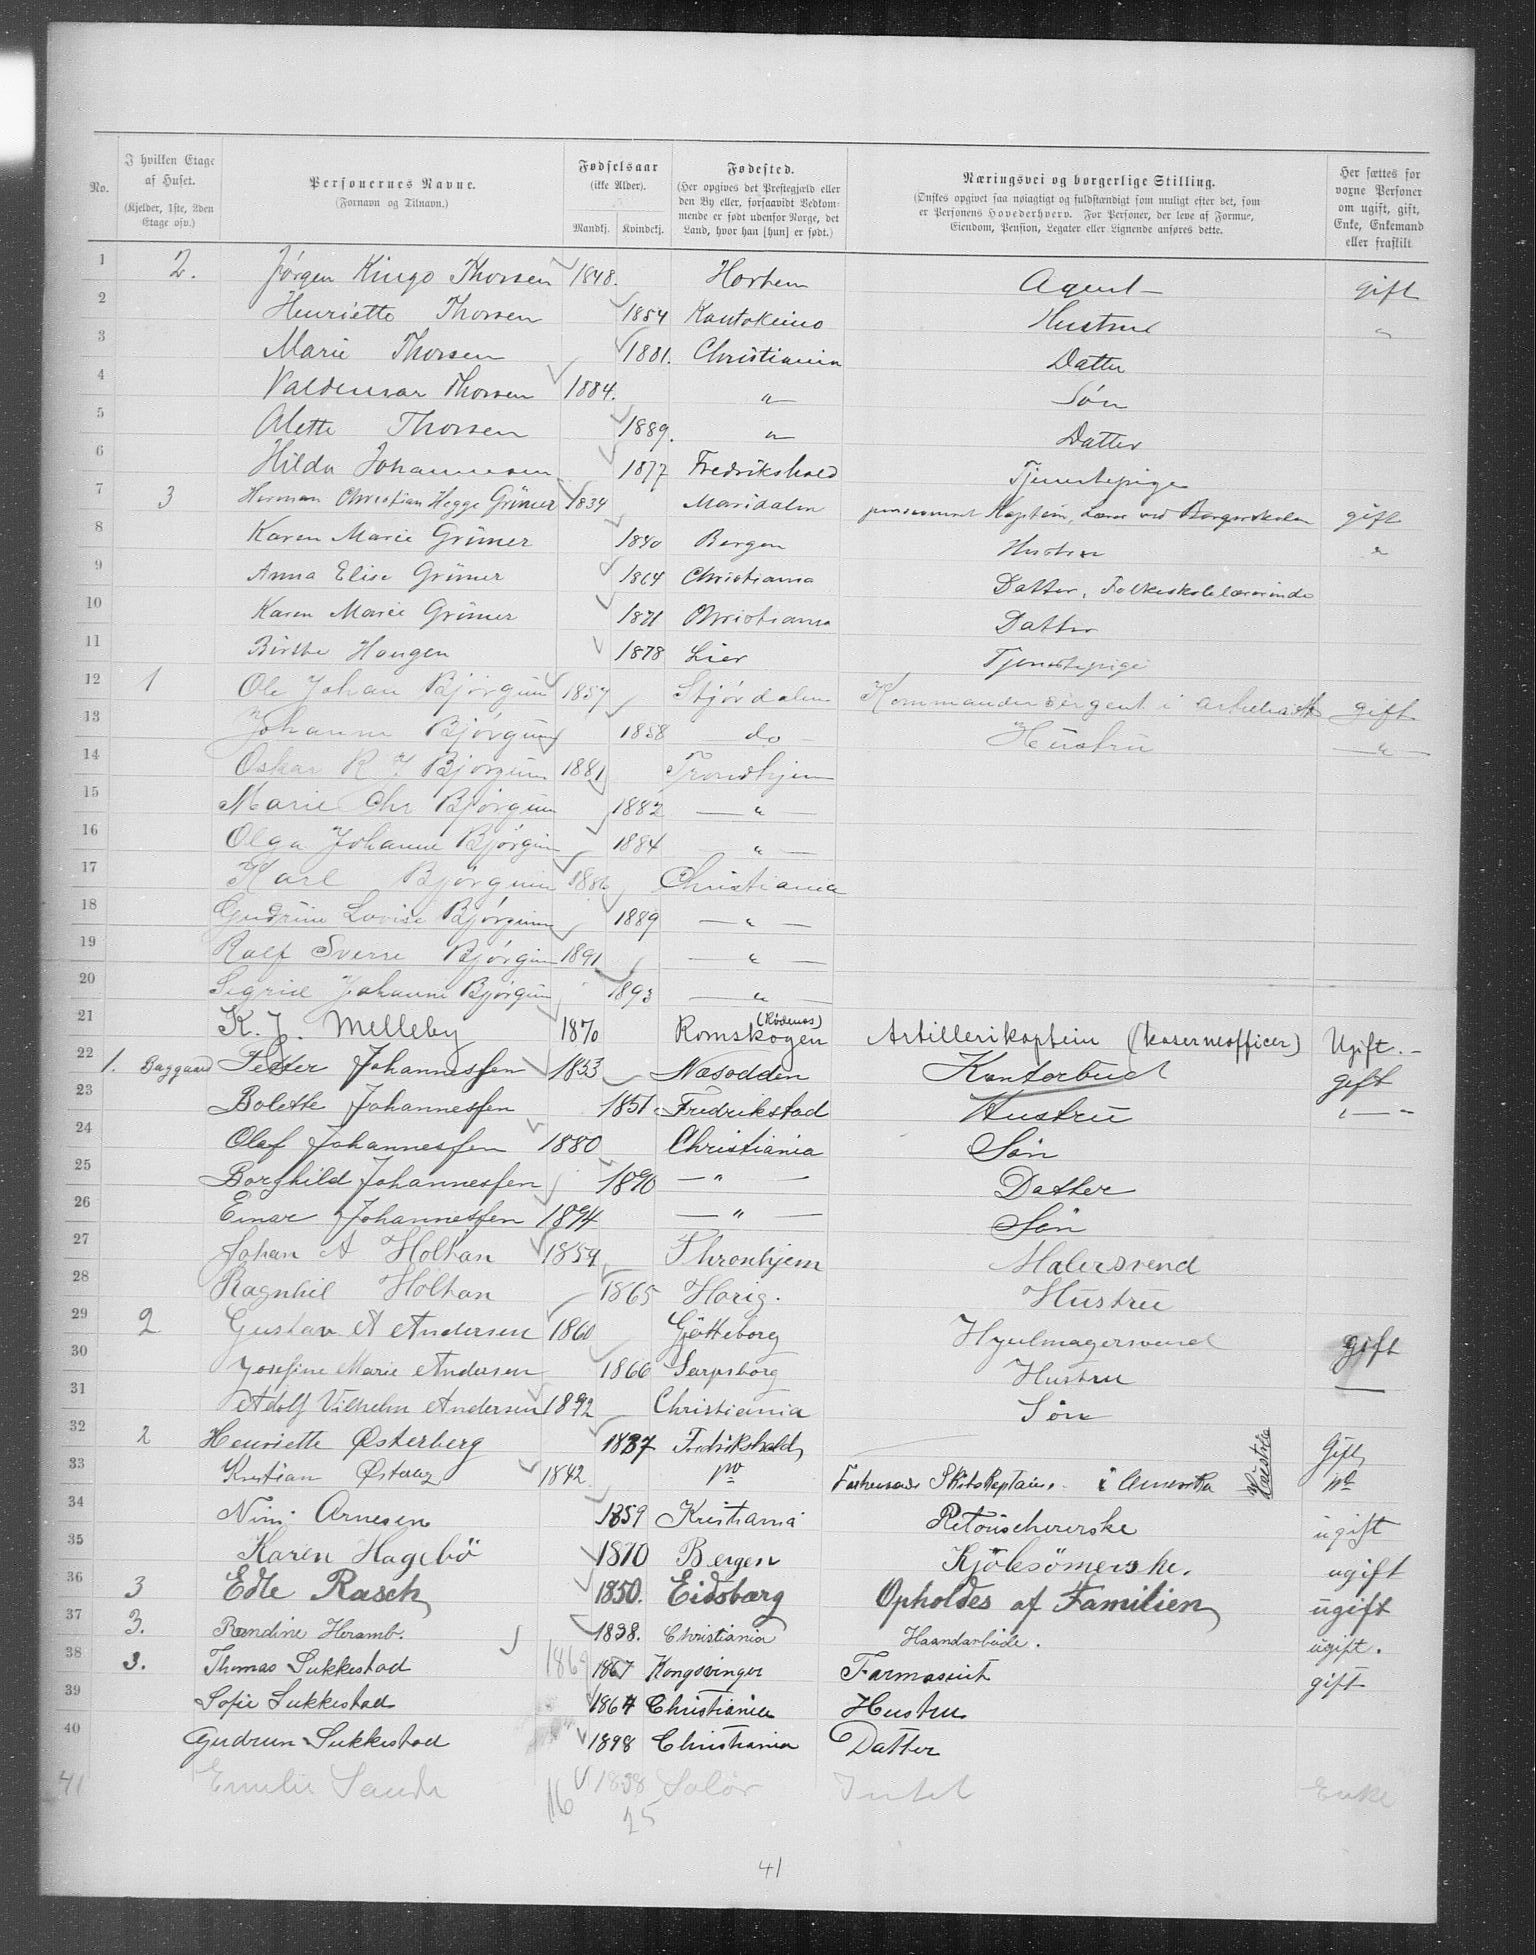 No. | I hvilken Etage af Huset. (Kjelder, 1ste, 2den Etage osv.) | Personernes Navne. (Fornavn og Tilnavn.) | Fødselsaar (ikke Alder). Mandkj. Kvindekj. | Fødested. (Her opgives det Prestegjæld eller den By eller, forsaavidt Vedkommende er født udenfor Norge, det Land, hvor han [hun] er født.) | Næringsvei og borgerlige Stilling. (Ønskes opgivet saa nøiagtigt og fuldstændigt som muligt efter det, som er Personens Hovederhverv. For Personer, der leve af Formue, Eiendom, Pension, Legater eller Lignende anføres dette. | Her sættes for voxne Personer om ugift, gift, Enke, Enkemand eller fraskilt
1 2. Jørgen Kingo Thorsen 1848. Horten Agent – gift
2 Henriette Thorsen 1854 Kautokeino Hustru "
3 Marie Thorsen 1881. Christiania Datter
4 Valdemar Thorsen 1884. " Søn
5 Alette Thorsen 1889. " Datter
6 Hilda Johannesen 1877 Fredrikshald Tjenestepige
7 3 Herman Christian Hegge Grüner 1834 Maridalen pensioneret Kaptein, Lærer ved Borgerskolen gift
8 Karen Marie Grüner 1840 Bergen Hustru "
9 Anna Elise Grüner 1864 Christiania Datter, Folkeskolelærerinde
10 Karen Marie Grüner 1871 Christiania Datter
11 Birthe Haugen 1878 Lier Tjenestepige
12 1 Ole Johan Bjørgum 1857 Stjørdalen Kommandersergent i gift
13 Johanne Bjørgum 1858 do Hustru "
14 Oskar R J Bjørgum 1881 Trondhjem
15 Marie Chr Bjørgum 1882 "
16 Olga Johanne Bjørgum 1884 "
17 Karl Bjørgum 1886 Christiania
18 Gudrun Lovise Bjørgum 1889 "
19 Ralf Sverre Bjørgum 1891 "
20 Sigrid Johanne Bjørgum 1893 "
21 K. J. Melleby 1870 Romskogen (Rødenes) Artillerikaptein (kaserneofficer) Ugift. –
22 1. Baggaard Petter Johannessen 1853 Næsodden Kontorbud gift
23 Bolette Johannessen 1851 Fredrikstad Hustru "
24 Olaf Johannessen 1880 Christiania Søn
25 Borghild Johannessen 1890 " Datter
26 Einar Johannessen 1894 " Søn
27 Johan A Holtan 1859 Thronhjem Malersvend
28 Ragnhil Holtan 1865 Horig. Hustru
29 2 Gustav A Andersen 1860 Gjøtteborg Hjulmagersvend gift
30 Josefine Marie Andersen 1866 Sarpsborg Hustru —
31 Adolf Vilhelm Andersen 1892 Christiania Søn
32 2 Henriette Østerberg 1837 Fredrikshald Hustru Gift
33 Kristian Østerbg 1842 do Skibskaptain i Amerika do
34 Nini Arnesen 1859 Kristiania Retouschererske ugift
35 Karen Hagebö 1870 Bergen Kjölesömerske. ugift
36 3 Edle Rasch 1850. Eidsberg Opholdes af Familien ugift
37 3. Randine Heramb. 1838. Christiania Haandarbeide. ugift.
38 3. Thomas Sukkestad 1867 1867 Kongsvinger Farmaceut gift
39 Sofie Sukkestad 1864 Christiania Hustru
40 Gudrun Sukkestad 1898 Christiania Datter
41 Emilie Sande 1838 Solør Intet Enke
16 25
41